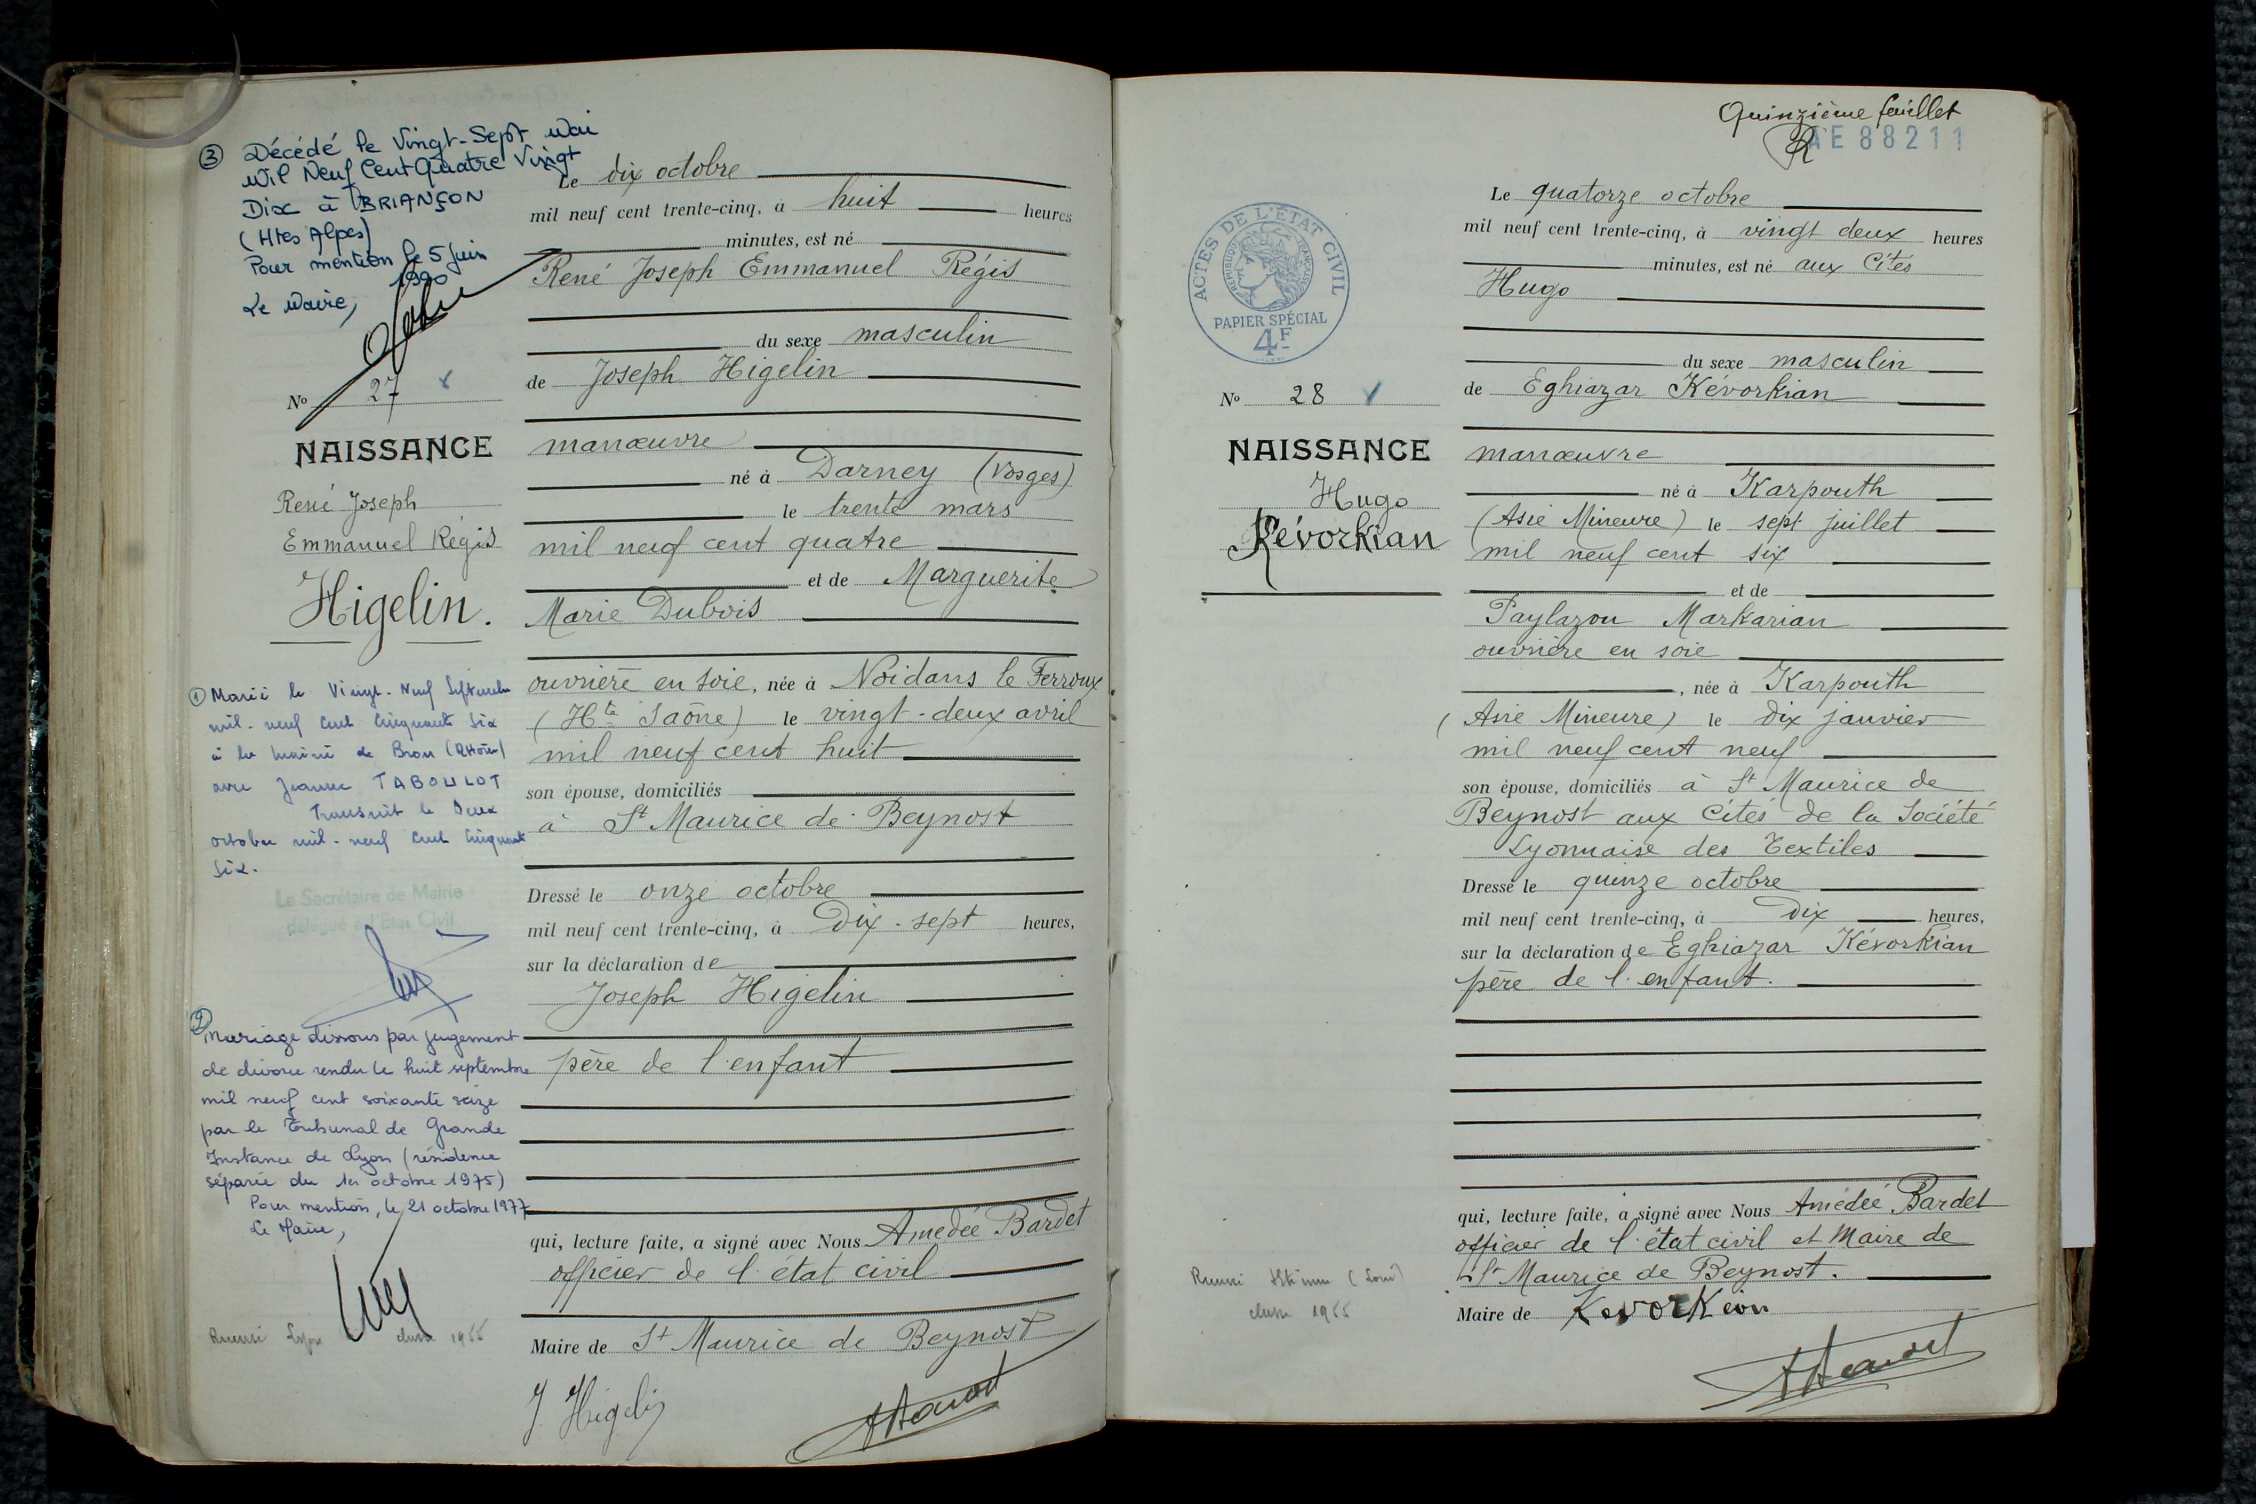 ③ Décédé le Vingt-Sept Mai
Mil Neuf Cent Quatre Vingt
Dix à BRIANÇON
(Htes Alpes)
Pour mention le 5 Juin
1990
Le Maire,
No 27
NAISSANCE
René Joseph
Emmanuel Régis
Higelin.
① Marié le Vingt-Neuf Septembre
mil-neuf cent cinquante six
à la mairie de Bron (Rhône)
avec Jeanne TABOULOT
Transcrit le Deux
octobre mil-neuf cent cinquante
six.
Le Secrétaire de Mairie
délégué à l'État Civil
② Mariage dissous par jugement
de divorce rendu le huit septembre
mil neuf cent soixante seize
par le Tribunal de Grande
Instance de Lyon (résidence
séparée du 1er octobre 1975)
Pour mention, le 21 octobre 1977
Le Maire,
Lyon classe 1955
Le dix octobre
mil neuf cent trente-cinq, à huit heures
minutes, est né
René Joseph Emmanuel Régis
du sexe masculin
de Joseph Higelin
manœuvre
né à Darney (Vosges)
le trente mars
mil neuf cent quatre
et de Marguerite
Marie Dubois
ouvrière en soie, née à Noidans le Ferroux
(Hte Saône) le vingt-deux avril
mil neuf cent huit
son épouse, domiciliés
à St Maurice de Beynost
Dressé le onze octobre
mil neuf cent trente-cinq, à Dix-sept heures,
sur la déclaration de
Joseph Higelin
père de l'enfant
qui, lecture faite, a signé avec Nous Amédée Bardet
officier de l'état civil
Maire de St Maurice de Beynost
J. Higelin
Quinzième feuillet
AE 88211
ACTES DE L'ÉTAT CIVIL
RÉPUBLIQUE FRANÇAISE
PAPIER SPÉCIAL
4F
No 28
NAISSANCE
Hugo
Kévorkian
classe 1955
Le quatorze octobre
mil neuf cent trente-cinq, à vingt deux heures
minutes, est né aux Cités
Hugo
du sexe masculin
de Eghiazar Kévorkian
manœuvre
né à Karpouth
(Asie Mineure) le sept juillet
mil neuf cent six
et de
Paylazou Markarian
ouvrière en soie
, née à Karpouth
(Asie Mineure) le Dix janvier
mil neuf cent neuf
son épouse, domiciliés à St Maurice de
Beynost aux Cités de la Société
Lyonnaise des Textiles
Dressé le quinze octobre
mil neuf cent trente-cinq, à Dix heures,
sur la déclaration de Eghiazar Kévorkian
père de l'enfant.
qui, lecture faite, a signé avec Nous Amédée Bardet
officier de l'état civil et Maire de
St Maurice de Beynost.
Maire de Kevorkian